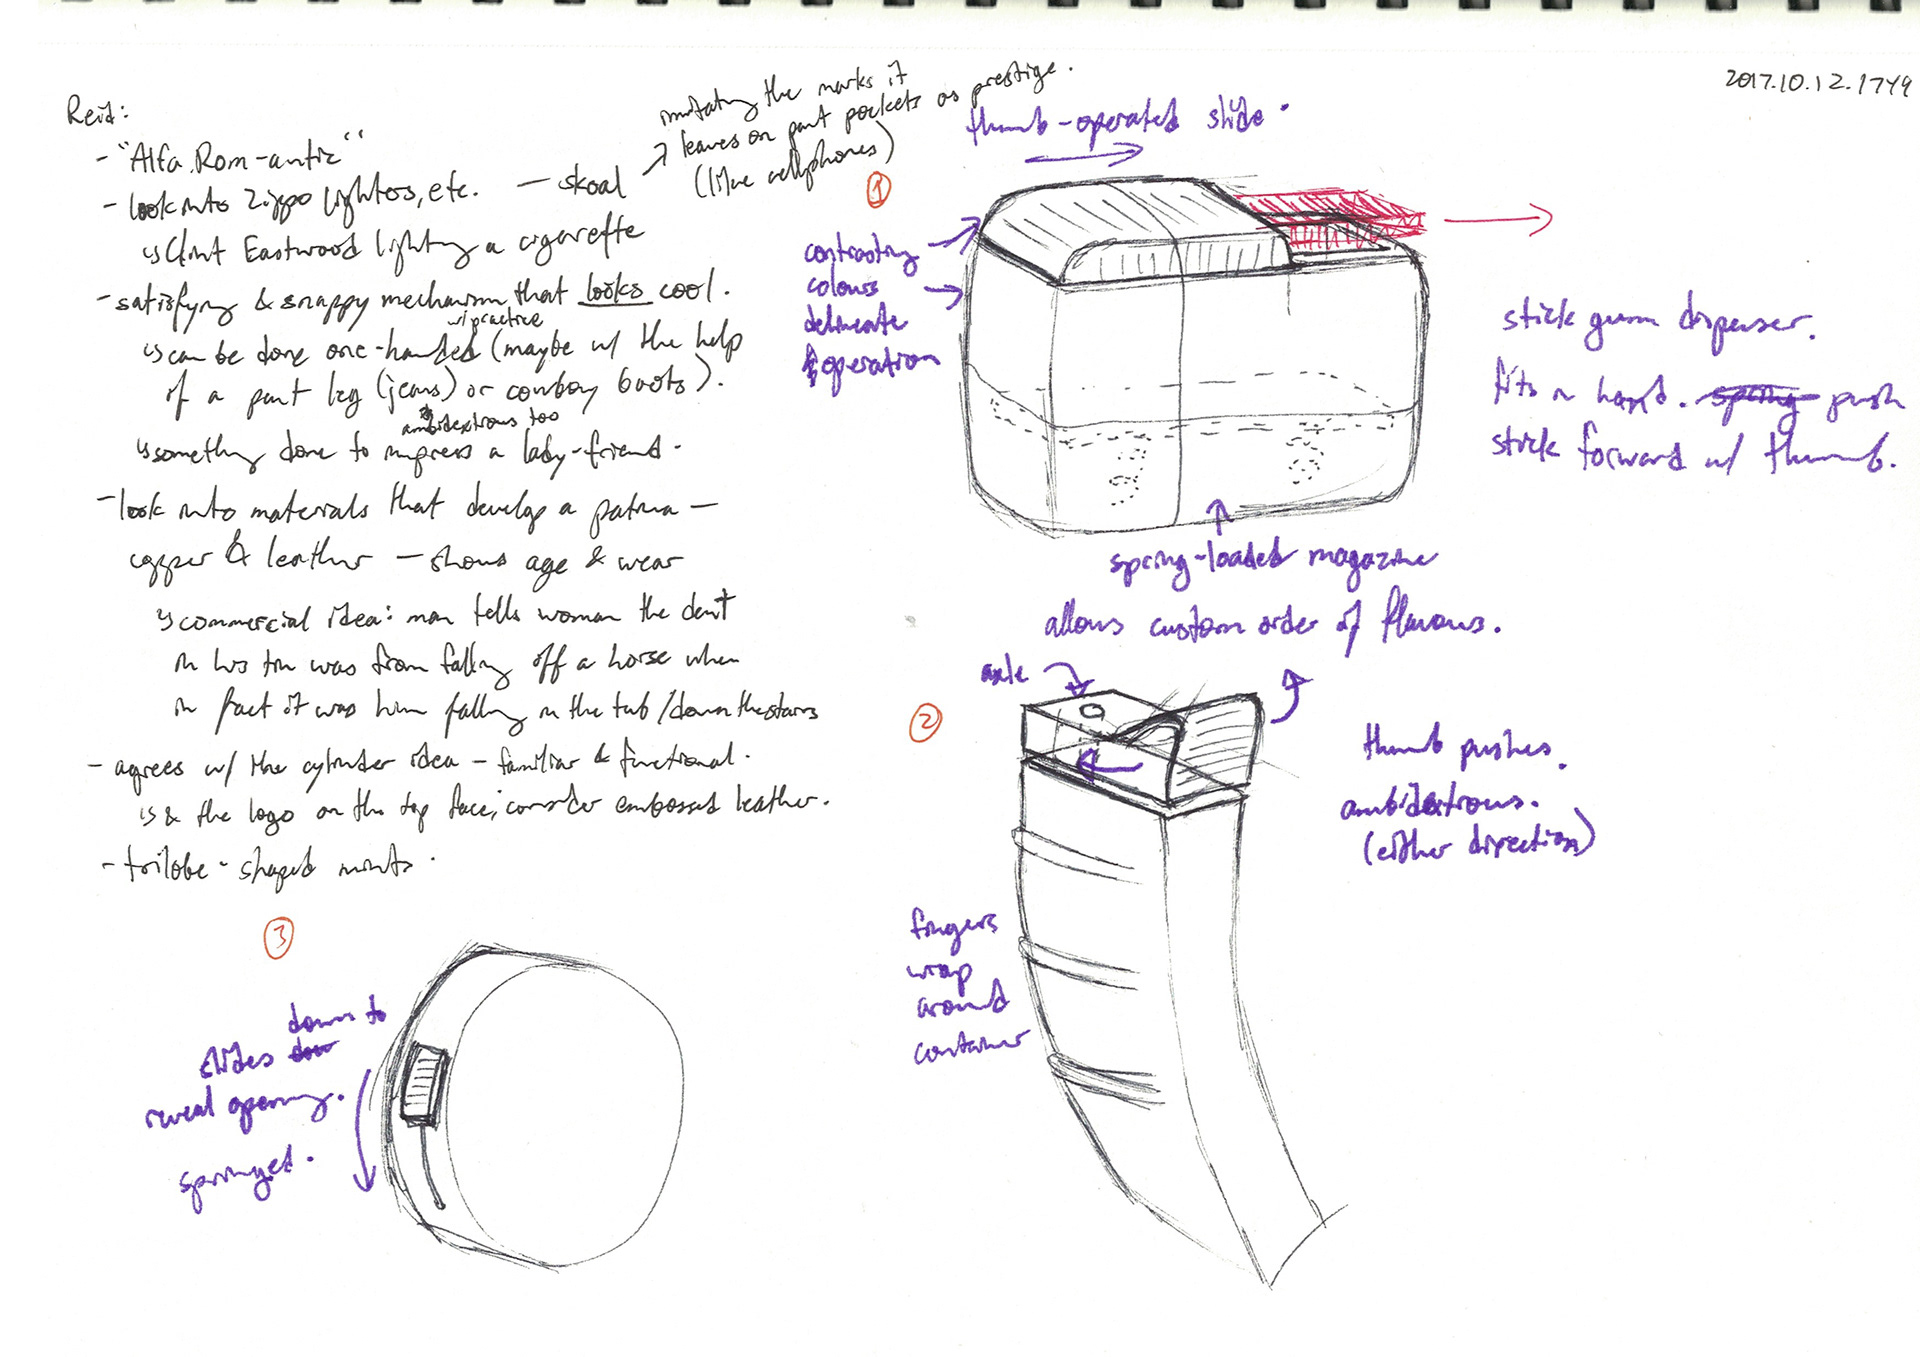 2017.10.12.1749
Reid:
- "Alfa.Rom-antic"
- look into Zippo lighters, etc. — skoal
imitating the marks it
leaves on pant pockets as prestige.
(like cellphones)
↳ Clint Eastwood lighting a cigarette
- satisfying & snappy mechanism that looks cool.
w/ practice
↳ can be done one-handed (maybe w/ the help
of a pant leg (jeans) or cowboy boots).
ambidextrous too
↳ something done to impress a lady-friend.
- look into materials that develop a patina —
copper & leather — shows age & wear
↳ commercial idea: man tells woman the dent
in his tin was from falling off a horse when
in fact it was him falling in the tub/down the stairs
- agrees w/ the cylinder idea - familiar & functional.
↳ & the logo on the top face; consider embossed leather.
- trilobe-shaped mints.
①
thumb-operated slide.
contrasting
colours
delineate
operation
stick gum dispenser.
fits in hand. spring push
stick forward w/ thumb.
spring-loaded magazine
allows custom order of flavours.
②
axle
thumb pushes.
ambidextrous.
(either direction)
fingers
wrap
around
container
③
down to
slides dow
reveal opening.
springed.